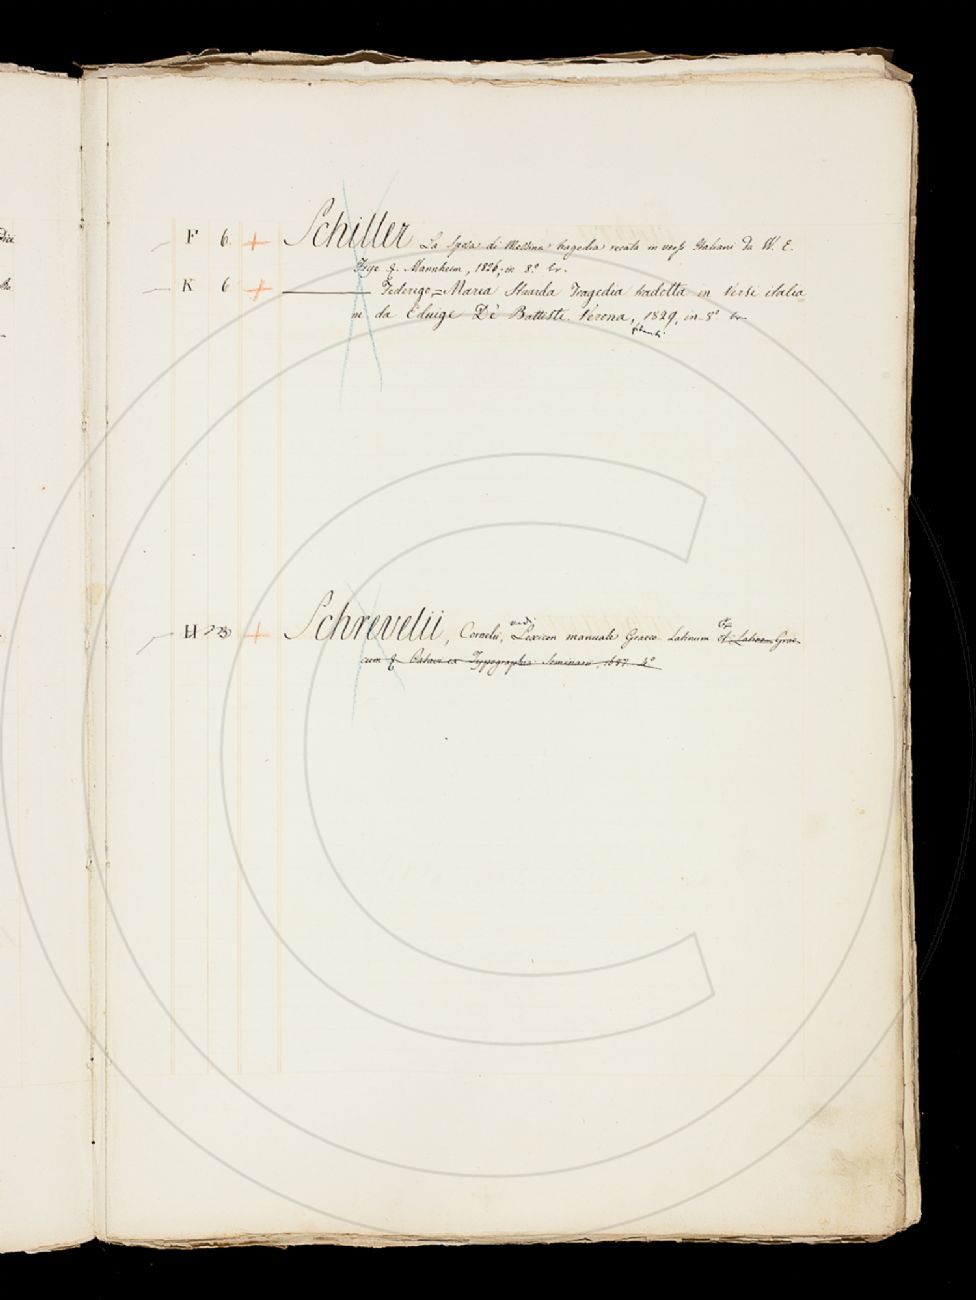 F 6. + Schiller La Sposa di Messina tragedia recata in versi Italiani da W. E.
Frye 8. Mannheim, 1826, in 8.° br.
K 6 + ——— Federigo = Maria Stuarda Tragedia tradotta in Versi italia
ni da Eduige De Battisti. Verona, 1829, in 8° br
H + Schrevelii, Cornelii, Lexicon manuale Graeco Latinum et Latino Grae-
vedi
cum Patavii ex Typographia Seminarii, 1687. 4°